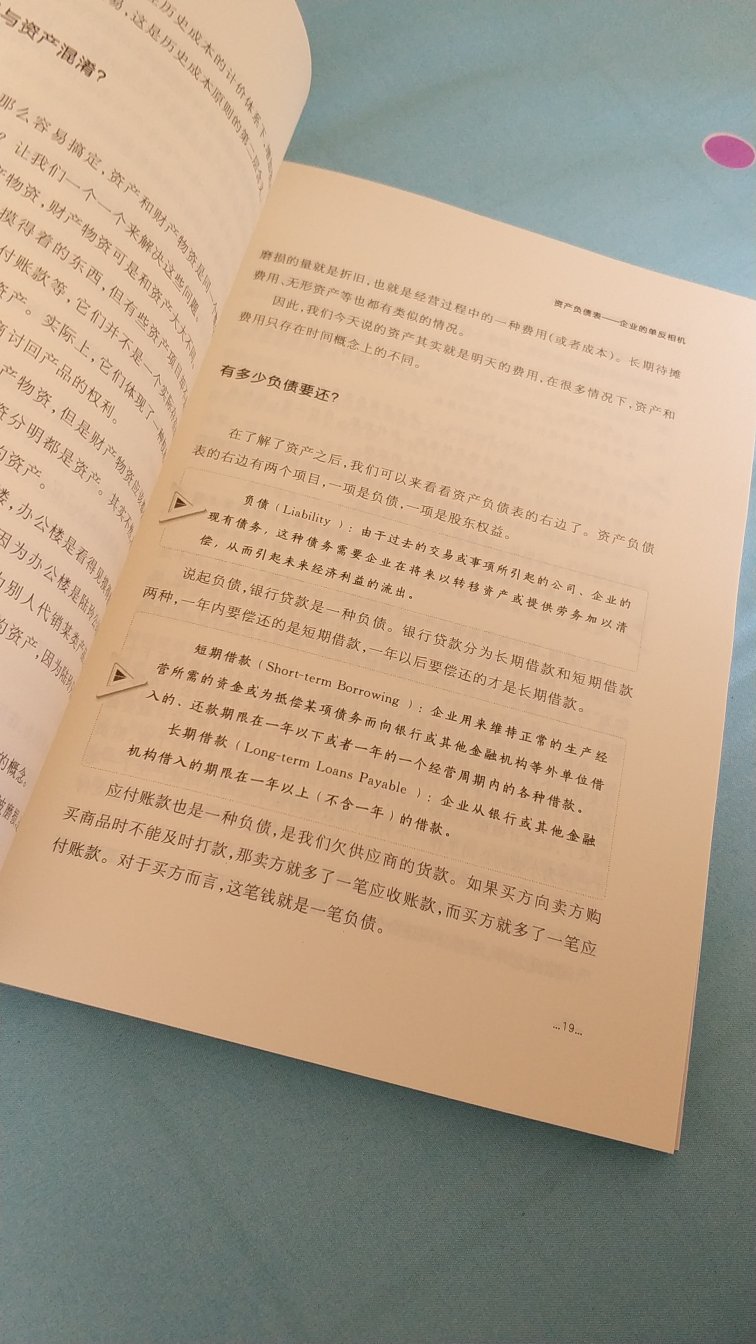 在历史成本的计价体系下
易,这是历史成本原则的第二层含义
与资产混淆?
那么容易搞定,资产和财产物资是同一个
?让我们一个一个来解决这些问题。
产物资,财产物资可是和资产大大不同
摸得着的东西,但有些资产项目
付账款等,它们并不是一个实际
资产。实际上,它们体现了一种
商讨回产品的权利。
产物资,但是财产物资
资分明都是资产。其实不
的资产。
楼,办公楼是看得见
因为办公楼是
为别人代销某类产
的资产,因为
的概念。
资产负债表——企业的单反相机
磨损的量就是折旧,也就是经营过程中的一种费用(或者成本)。长期待摊
费用、无形资产等也都有类似的情况。
因此,我们今天说的资产其实就是明天的费用,在很多情况下,资产和
费用只存在时间概念上的不同。
有多少负债要还?
在了解了资产之后,我们可以来看看资产负债表的右边了。资产负债
表的右边有两个项目,一项是负债,一项是股东权益。
负债(Liability):由于过去的交易或事项所引起的公司、企业的
现有债务,这种债务需要企业在将来以转移资产或提供劳务加以清
偿,从而引起未来经济利益的流出。
说起负债,银行贷款是一种负债。银行贷款分为长期借款和短期借款
两种,一年内要偿还的是短期借款,一年以后要偿还的才是长期借款。
短期借款(Short-term Borrowing):企业用来维持正常的生产经
营所需的资金或为抵偿某项债务而向银行或其他金融机构等外单位借
入的、还款期限在一年以下或者一年的一个经营周期内的各种借款。
长期借款(Long-term Loans Payable):企业从银行或其他金融
机构借入的期限在一年以上(不含一年)的借款。
应付账款也是一种负债,是我们欠供应商的货款。如果买方向卖方购
买商品时不能及时打款,那卖方就多了一笔应收账款,而买方就多了一笔应
付账款。对于买方而言,这笔钱就是一笔负债。
…19…